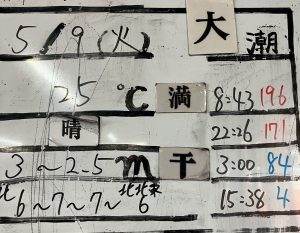 5/9(火) 大潮
25℃ 満 8:43 196
晴 22:26 171
3~2.5m 干 3:00 84
北 北北東 15:38 4
6~7~7~6